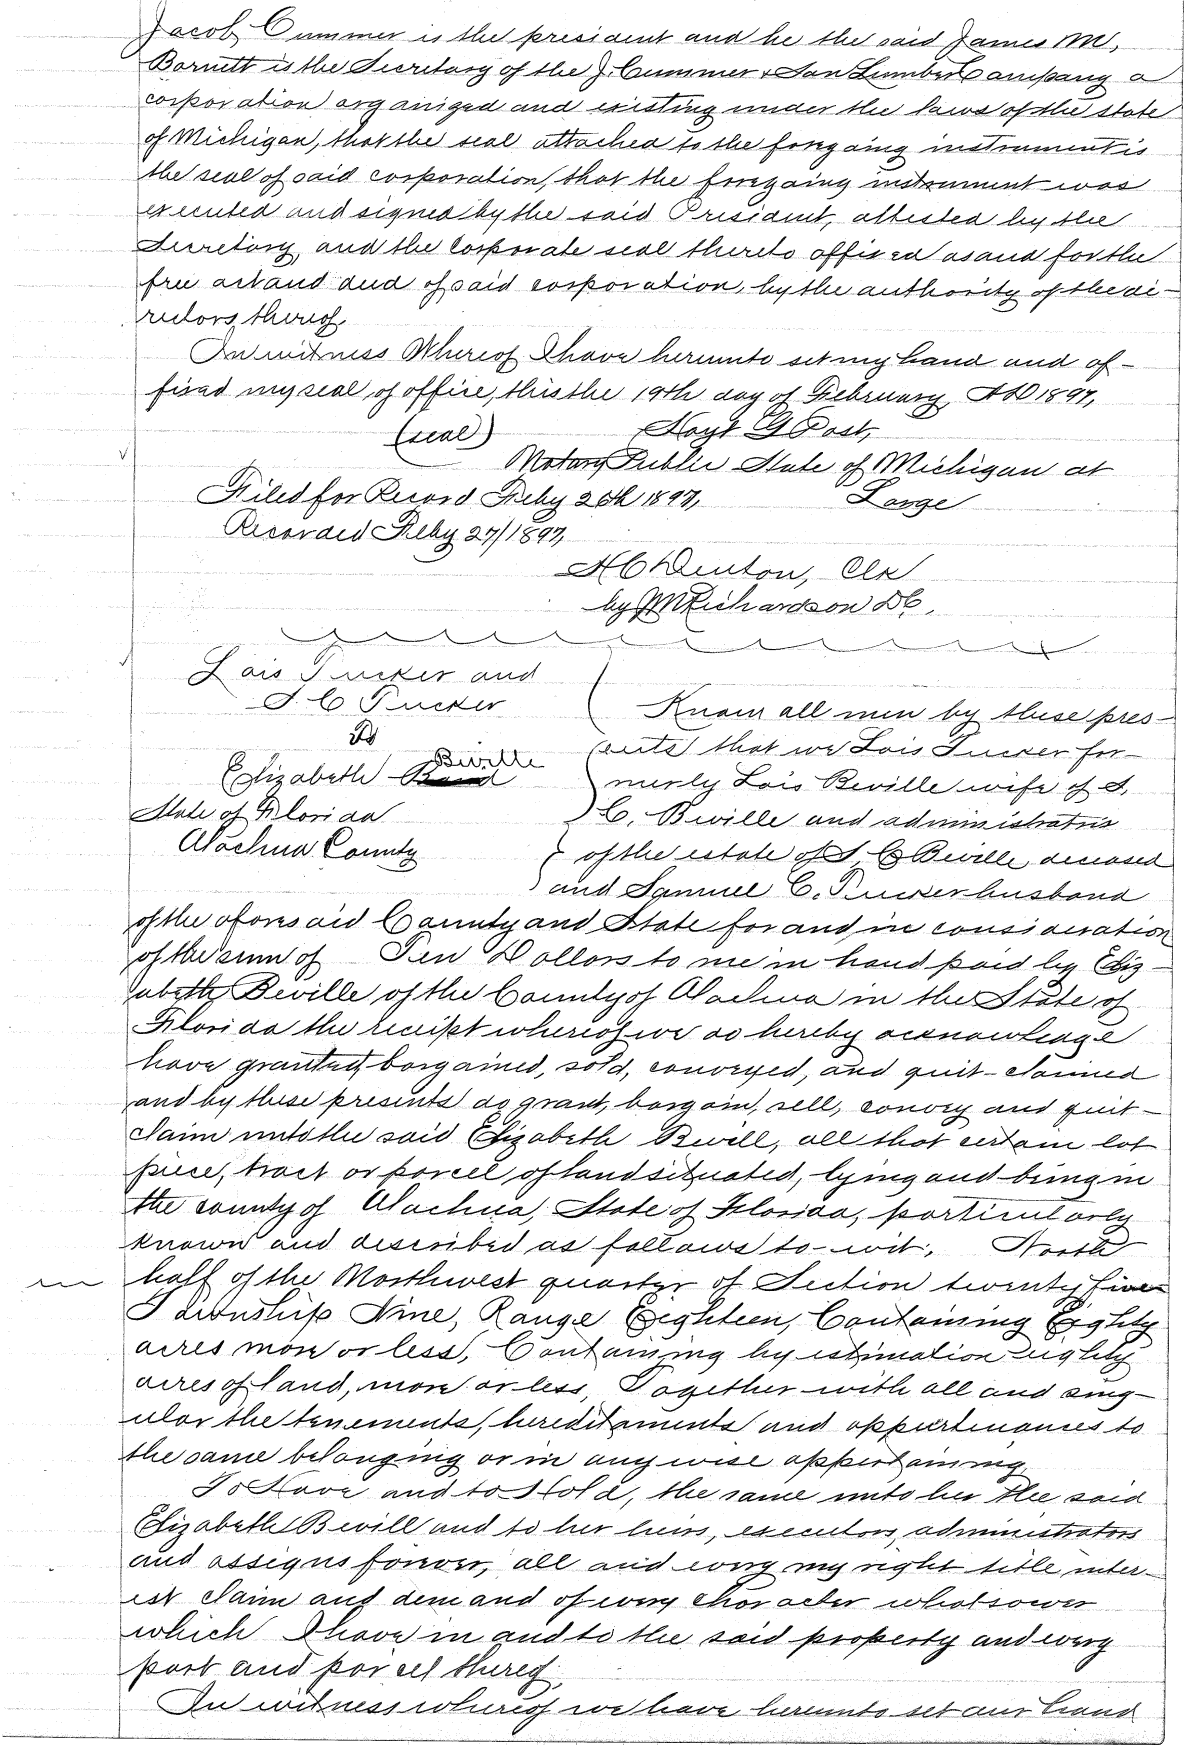 Jacob Cummer is the president and he the said James M,
Barnett is the Secretary of the J. Cummer & Son Lumber Company a
corporation organized and existing under the laws of the state
of Michigan, that the seal attached to the foregoing instrument is
the seal of said corporation, that the foregoing instrument was
executed and signed by the said President, attested by the
Secretary, and the Corporate seal thereto affixed as and for the
free act and deed of said corporation, by the authority of the di-
rectors thereof.
In witness Whereof I have hereunto set my hand and af-
fixed my seal of office, this the 19th day of February, AD 1897,
(seal) Hoyt G Post,
Notary Public State of Michigan at
Filed for Record Feby 26th 1897, Large
Recorded Feby 27/1897,
H C Denton, Clk
by M Richardson DC,
Lois Tucker and
S. C Tucker
To
Elizabeth Beville
State of Florida
Alachua County
Know all men by these pres-
ents that we Lois Tucker for-
merly Lois Beville wife of S.
C. Beville and administratrix
of the estate of S C Beville, deceased
and Samuel C. Tucker husband
of the aforesaid County and State for and in consideration
of the sum of Ten Dollars to me in hand paid by Eliz-
abeth Beville of the County of Alachua in the State of
Florida the receipt whereof we do hereby acknowledge
have granted, bargained, sold, conveyed, and quit-claimed
and by these presents do grant, bargain, sell, convey and quit-
claim unto the said Elizabeth Bevill, all that certain lot
piece, tract or parcel of land situated, lying and being in
the county of Alachua, State of Florida, particularly
known and described as follows to-wit: North
half of the Northwest quarter of Section twenty five
Township Nine, Range Eighteen, Containing Eighty
acres more or less, Containing by estimation eighty
acres of land, more or less, Together with all and sing-
ular the tenements, hereditaments and appurtenances to
the same belonging or in any wise appertaining,
To Have and to Hold, the same unto her the said
Elizabeth Bevill and to her heirs, executors, administrators
and assigns forever, all and every my right title inter-
est claim and demand of every character whatsoever
which I have in and to the said property and every
part and parcel thereof,
In witness whereof we have hereunto set our hand